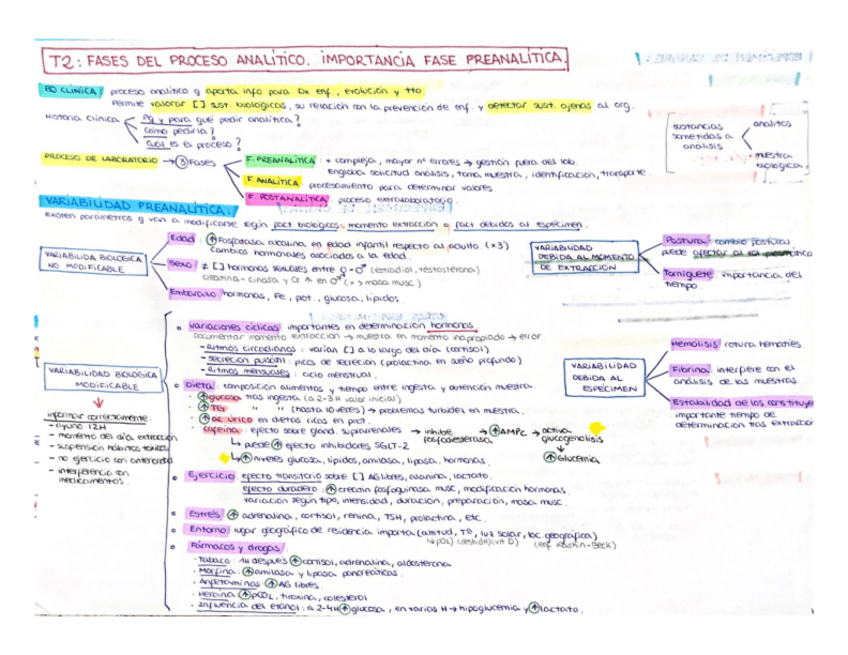 T2: FASES DEL PROCESO ANALÍTICO. IMPORTANCIA FASE PREANALÍTICA.
BQ CLÍNICA: proceso analítico q aporta info para Dx enf., evolución y tto.
Permite valorar [ ] sust. biológicas, su relación con la prevención de enf. y detectar sust. ajenas al org.
Historia clínica
Pq y para qué pedir analítica?
Cómo pedirla?
Cuál es el proceso?
sustancias sometidas a análisis
analitos
muestra biológica
PROCESO DE LABORATORIO → 3 Fases
F. PREANALÍTICA: + compleja, mayor nº errores → gestión fuera del lab.
Engloba solicitud análisis, toma muestra, identificación, transporte.
F. ANALÍTICA: procesamiento para determinar valores.
F. POSTANALÍTICA: proceso extralaboratorio.
VARIABILIDAD PREANALÍTICA:
Existen parámetros q van a modificarse según fact biológicos, momento extracción o fact debidos al espécimen.
VARIABILIDA BIOLÓGICA
NO MODIFICABLE
Edad: ↑ Fosfatasa alcalina, en edad infantil respecto al adulto (x3)
cambios hormonales asociados a la edad.
Sexo: ≠ [ ] hormonas sexuales entre ♀-♂ (estradiol, testosterona)
creatina-cinasa y Cr ↑ en ♂ (x > masa musc.)
Embarazo: hormonas, Fe, prot., glucosa, lípidos
VARIABILIDAD
DEBIDA AL MOMENTO
DE EXTRACCIÓN
Postura: cambio postural
puede afectar al vol plasmático
Torniquete: importancia del
tiempo.
VARIABILIDAD BIOLÓGICA
MODIFICABLE
informar correctamente:
- ayuno 12H
- momento del día extracción
- suspensión hábitos tóxicos
- no ejercicio con anterioridad
- interferencia con
medicamentos.
• Variaciones cíclicas: importantes en determinación hormonas
Documentar momento extracción → muestra en momento inapropiado → error
- Ritmos circadianos: varían [ ] a lo largo del día (cortisol)
- Secreción pulsátil: picos de secreción (prolactina en sueño profundo)
- Ritmos mensuales: ciclo menstrual.
• Dieta: composición alimentos y tiempo entre ingesta y obtención muestra.
· ↑ glucosa tras ingesta (a 2-3H valor inicial)
· ↑ TG " " (hasta 10 veces) → problemas turbidez en muestra.
· ↑ ác. úrico en dietas ricas en prot.
· cafeína: efecto sobre gland. suprarrenales → inhibe fosfodiesterasa → ↑ AMPC → activa glucogenólisis
↓
↑ Glucemia
↳ puede ↑ efecto inhibidores SGLT-2
↳ ↑ niveles glucosa, lípidos, amilasa, lipasa, hormonas.
• Ejercicio: efecto transitorio sobre [ ] AG libres, alanina, lactato.
efecto duradero: ↑ creatin fosfoquinasa musc., modificación hormonas.
variación según tipo, intensidad, duración, preparación, masa musc.
• Estrés: ↑ adrenalina, cortisol, renina, TSH, prolactina, etc.
• Entorno: lugar geográfico de residencia importa (altitud, Tª, luz solar, loc. geográfica)
(vit D) (enf Kashin-Beck)
• Fármacos y drogas:
· Tabaco: 1H después ↑ cortisol, adrenalina, aldosterona
· Morfina: ↑ amilasa y lipasa pancreáticas.
· Anfetaminas ↑ AG libres.
· Heroína ↑ pCO₂, tiroxina, colesterol
· Influencia del etanol: a 2-4H ↑ glucosa, en varias H → hipoglucemia y ↑ lactato.
VARIABILIDAD
DEBIDA AL
ESPÉCIMEN
Hemólisis: rotura hematíes.
Fibrina: interfiere con el
análisis de las muestras
Estabilidad de los constituye
importante tiempo de
determinación tras extracción